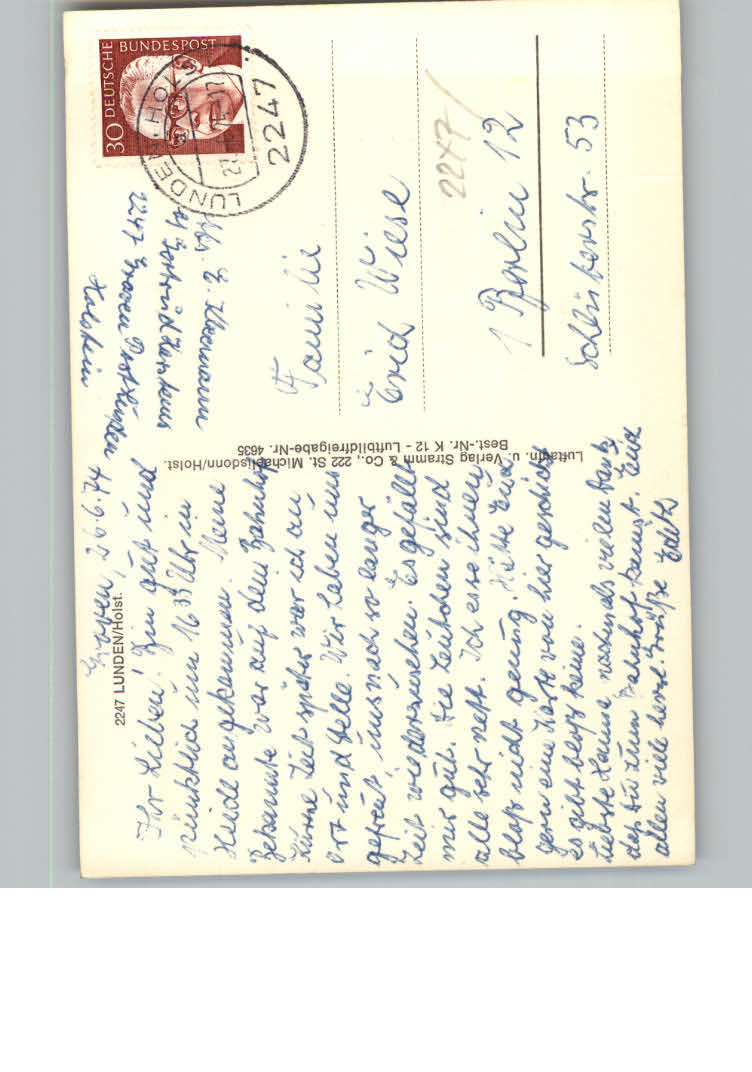 2247 LUNDEN/Holst.
Groven, 26.6.74
Ihr Lieben! Bin gut und
pünktlich um 16 33 Uhr in
Heide angekommen. Meine
Bekannte war auf dem Bahnhof
Kurze Zeit später war ich an
Ort und Stelle. Wir haben uns
gefreut, uns nach so langer
Zeit wiederzusehen. Es gefällt
mir gut. Die Leutchen sind
alle sehr nett. Ich esse ihnen
bloß nicht genung. Hätte Euch
gern eine Karte von hier geschickt
es gibt bloß keine.
Liebste Hanne nochmals vielen Dank,
daß Du zum Bahnhof kamst. Euch
allen viele herzl. Grüße
Luftaufn. u. Verlag Stramm & Co., 222 St. Michaelisdonn/Holst.
Best.-Nr. K 12 - Luftbildfreigabe-Nr. 4635
Abs. E.
2247 Groven
Holstein
DEUTSCHE BUNDESPOST
30
LUNDEN, HOLST
2247
2247
Familie
Erich Wiese
1 Berlin 12
Schlüterstr. 53